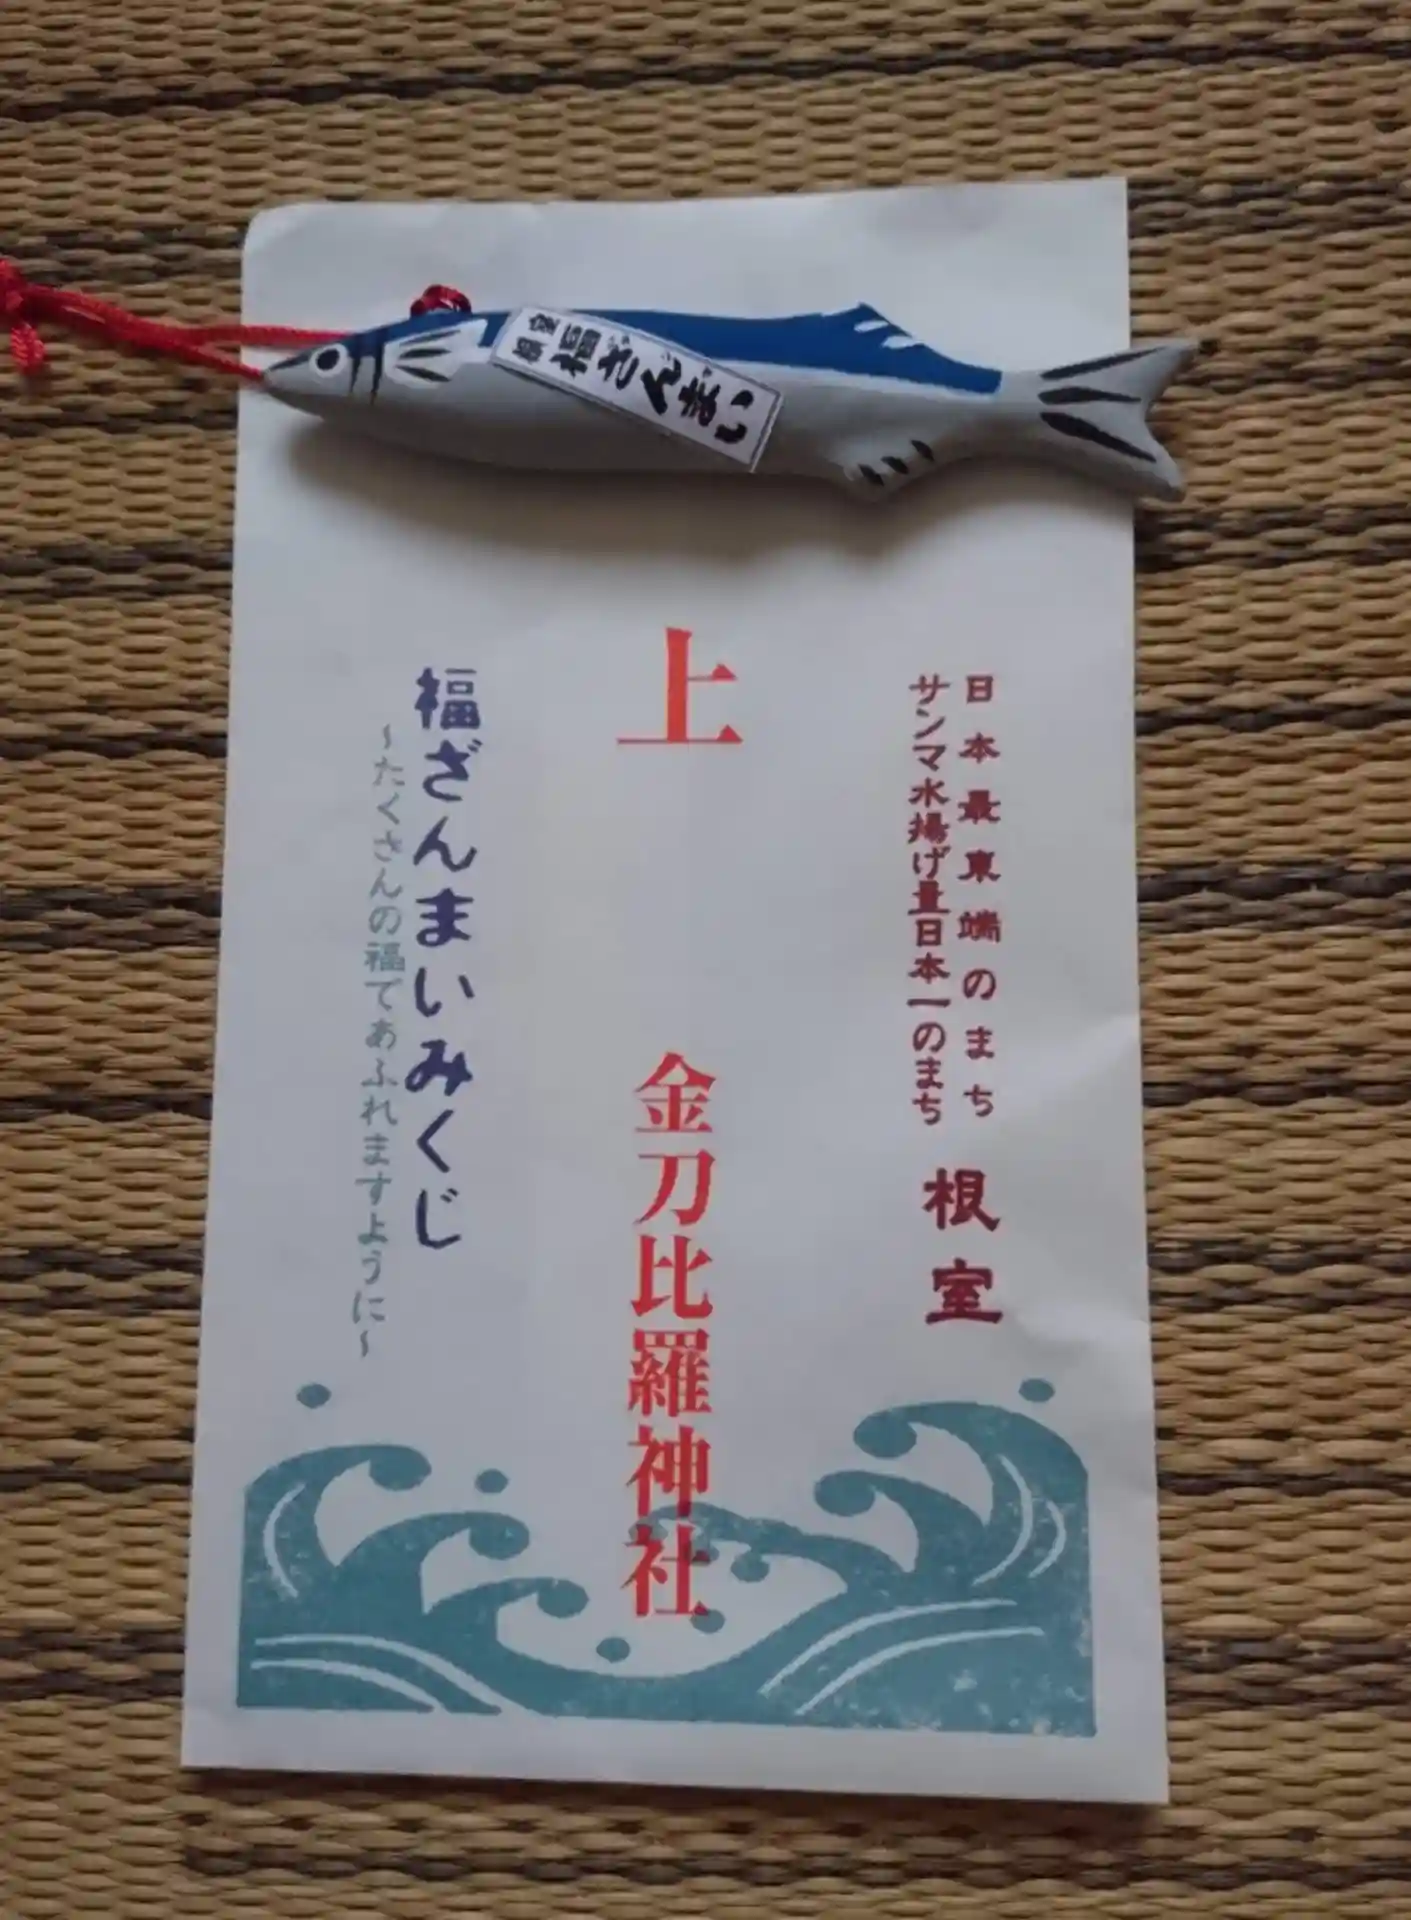 根室
福ざんまい
上
日本最東端のまち
サンマ水揚げ量日本一のまち
根室
金刀比羅神社
福ざんまいみくじ
~たくさんの福であふれますように~